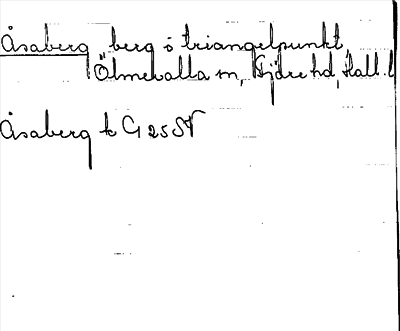 Åsaberg berg o triangelpunkt,
Ölmevalla sn, Fjäre hd, Hall. l
Åsaberg tk G 25 SV